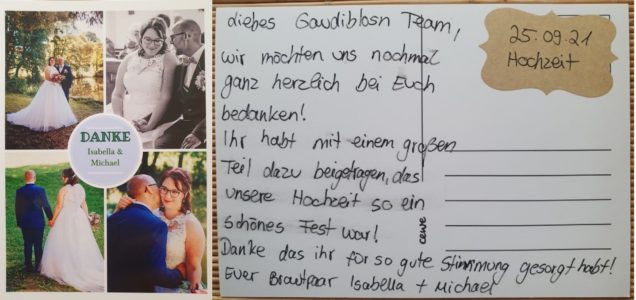 DANKE
Isabella &
Michael
Liebes Gaudiblosn Team,
wir möchten uns nochmal
ganz herzlich bei Euch
bedanken!
Ihr habt mit einem großen
Teil dazu beigetragen, das
unsere Hochzeit so ein
schönes Fest war!
Danke das ihr for so gute Stimmung gesorgt habt!
Euer Brautpaar Isabella + Michael
25.09.21
Hochzeit
cewe